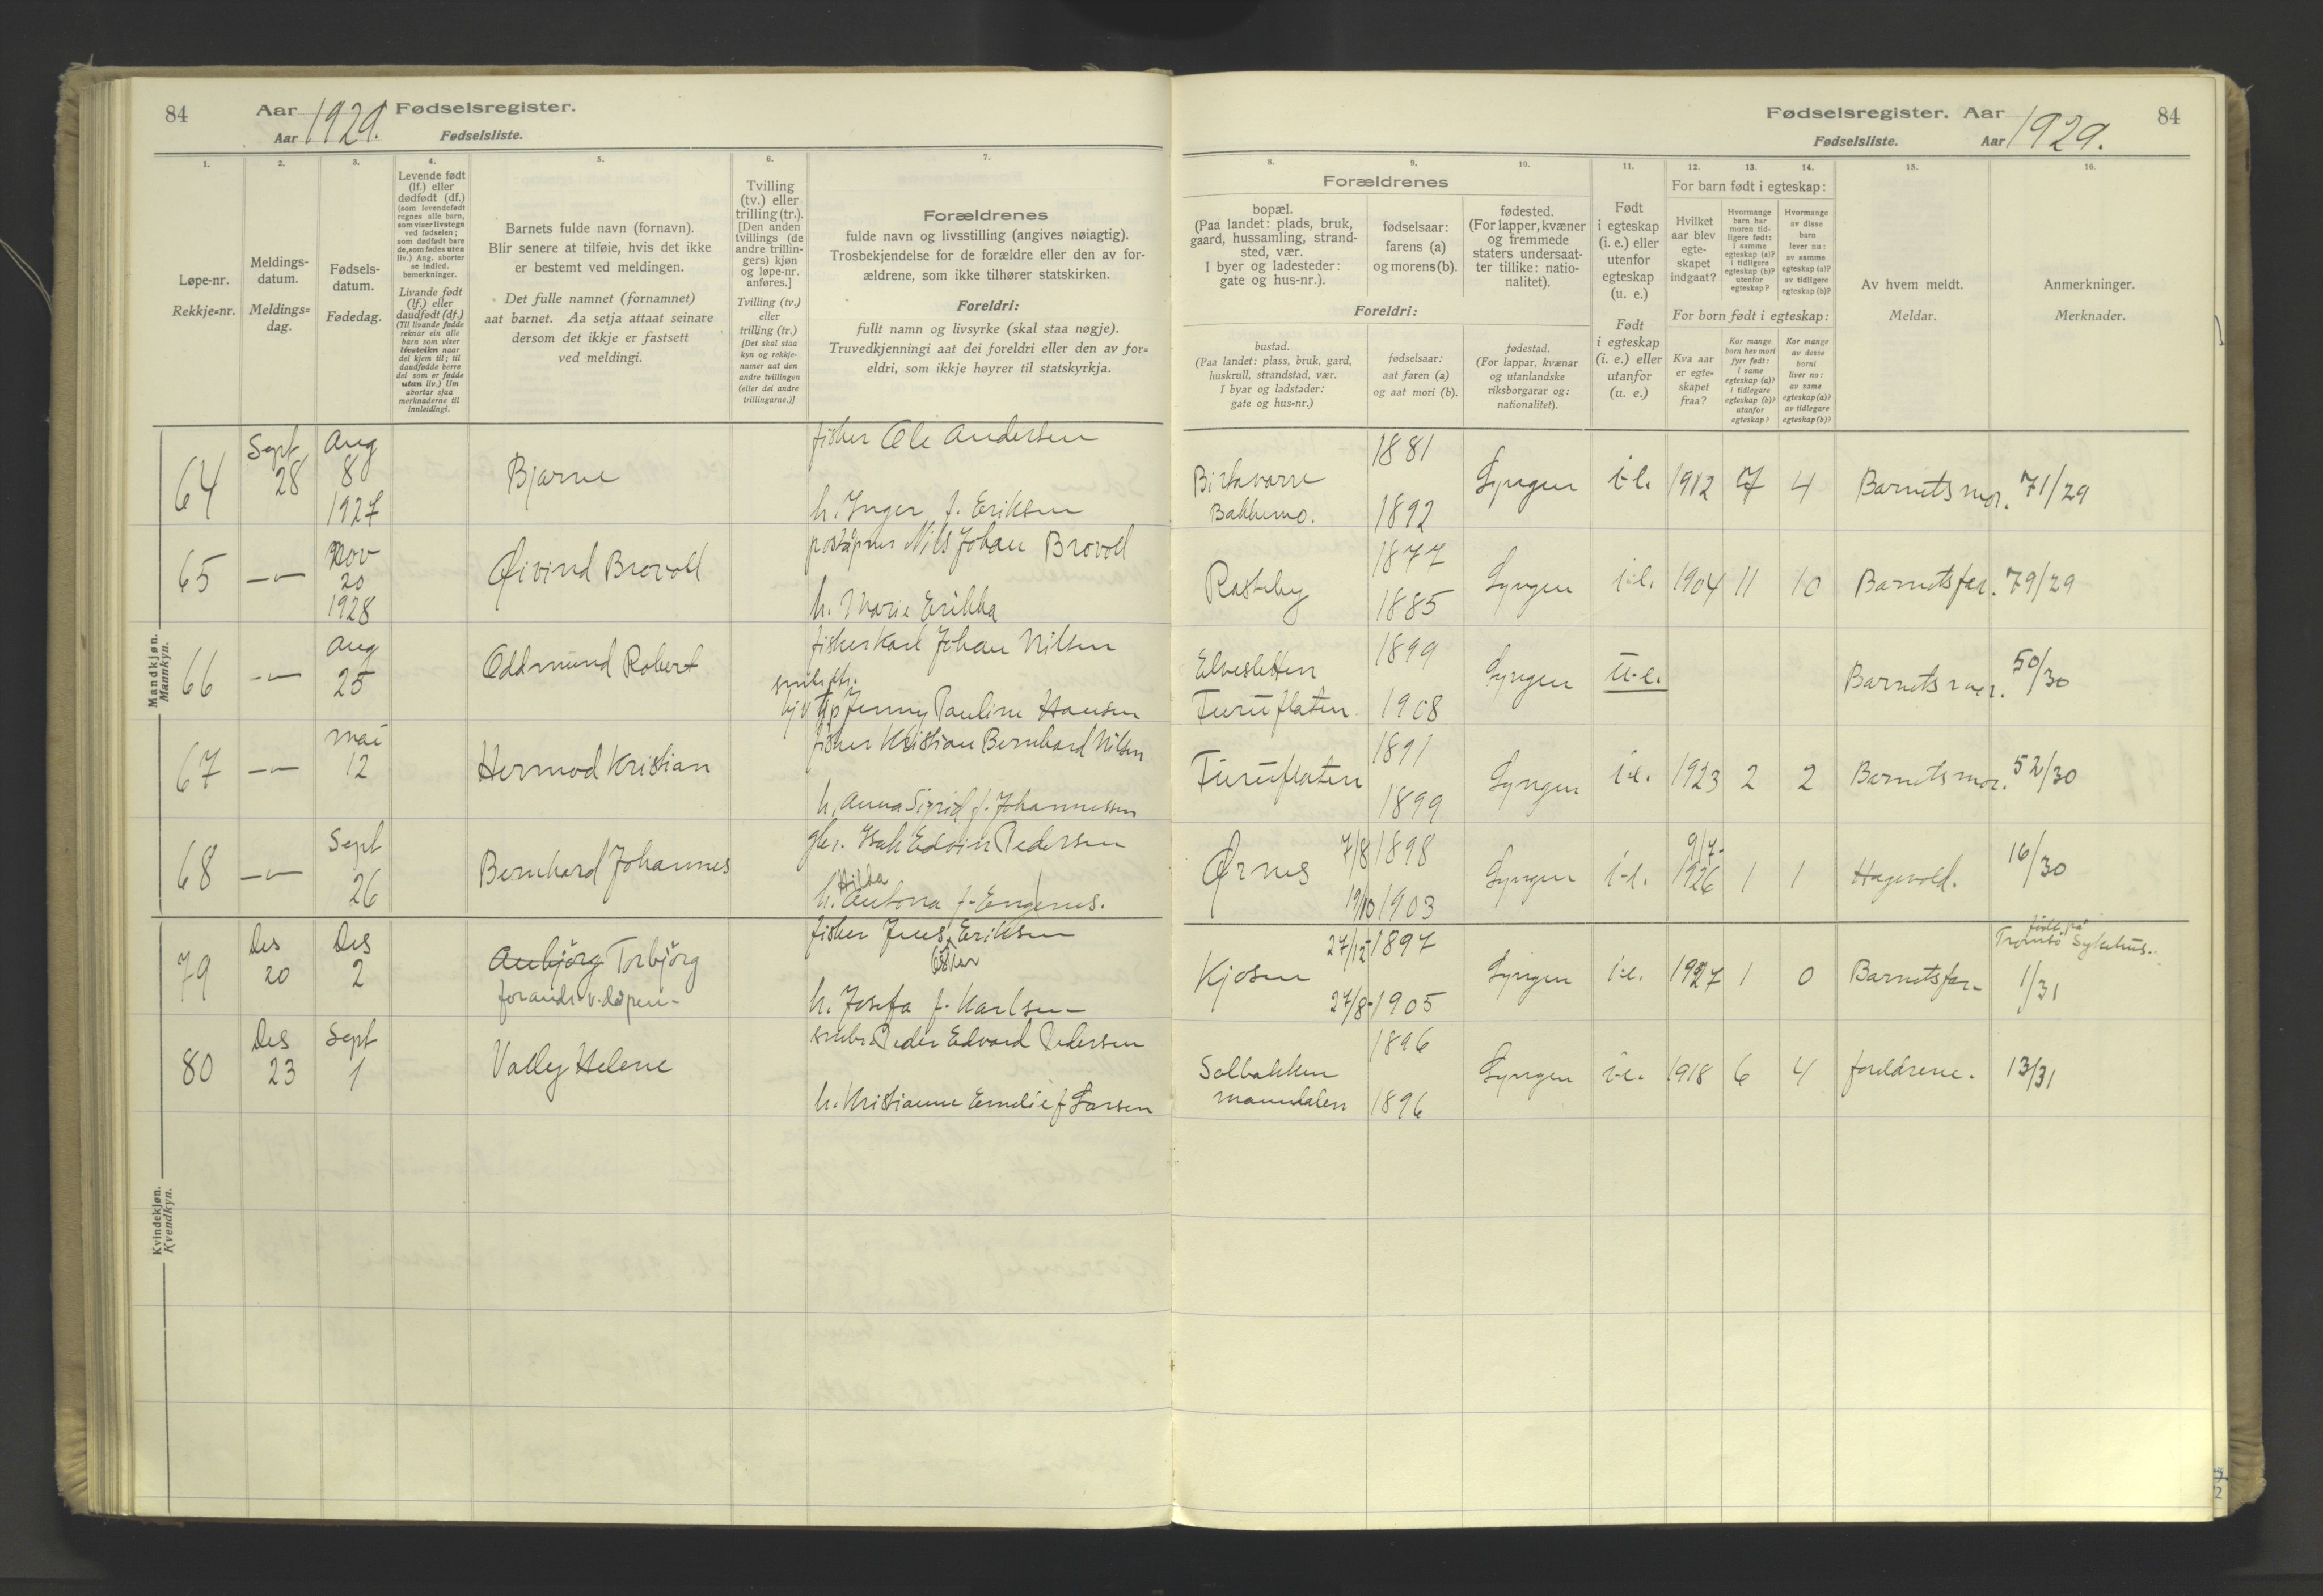 84
Aar 1929. Fødselsregister.
Aar Fødselsliste.
1.
2.
3.
4.
5.
6.
7.
Løpe-nr.
Rekkje=nr.
Meldings-
datum.
Meldings=
dag.
Fødsels-
datum.
Fødedag.
Levende født
(lf.) eller
dødfødt (df.)
(som levendefødt
regnes alle barn,
som viser livstegn
ved fødselen;
som dødfødt bare
de, som fødes uten
liv.) Ang. aborter
se indled.
bemerkninger.
Livande født
(lf.) eller
daudfødt (df.)
(Til livande fødde
reknar ein alle
barn som viser
livsteikn naar
dei kjem til; til
daudfødde berre
dei som er fødde
utan liv.) Um
abortar sjaa
merknaderne til
innleidingi.
Barnets fulde navn (fornavn).
Blir senere at tilføie, hvis det ikke
er bestemt ved meldingen.
Det fulle namnet (fornamnet)
aat barnet. Aa setja attaat seinare
dersom det ikkje er fastsett
ved meldingi.
Tvilling
(tv.) eller
trilling (tr.).
[Den anden
tvillings (de
andre trillin-
gers) kjøn
og løpe-nr.
anføres.]
Tvilling (tv.)
eller
trilling (tr.)
[Det skal staa
kyn og rekkje-
numer aat den
andre tvillingen
(eller dei andre
trillingarne.)]
Forældrenes
fulde navn og livsstilling (angives nøiagtig).
Trosbekjendelse for de forældre eller den av for-
ældrene, som ikke tilhører statskirken.
Foreldri:
fullt namn og livsyrke (skal staa nøgje).
Truvedkjenningi aat dei foreldri eller den av for=
eldri, som ikkje høyrer til statskyrkja.
Mandkjøn.
Mannkyn.
64
Sept
28
Aug
8
1927
Bjarne
fisker Ole Andersen
h. Inger f. Eriksen
65
—"—
Nov
20
1928
Øivind Brovold
poståpner Nils Johan Brovold
h. Marie Erikka
66
—"—
Aug
25
Oddmund Robert
fisker Karl Johan Nilsen
Jenny Pauline Hansen
67
—"—
mai
12
Hermod Kristian
fisker Kristian Bernhard Nilsen
h. Anna Sigrid f. Johannessen
68
—"—
Sept
26
Bernhard Johannes
gbr. Isak Edvin Pedersen
Hilda
h. Antona f. Engenes.
Kvindekjøn.
Kvendkyn.
79
Des
20
Des
2
Anbjörg Torbjörg
forandr. v. dåpen-
fisker Jens Eriksen
Oskar
h. Josefa f. Karlsen-
80
Des
23
Sept
1
Valley Helene
småbr. Peder Edvard Pedersen
h. Kristianne Emelie f Larsen
Fødselsregister. Aar 1929.
84
Fødselsliste. Aar
8.
9.
10.
11.
12.
13.
14.
15.
16.
Forældrenes
bopæl.
(Paa landet: plads, bruk,
gaard, hussamling, strand-
sted, vær.
I byer og ladesteder:
gate og hus-nr.).
fødselsaar:
farens (a)
og morens (b).
fødested.
(For lapper, kvæner
og fremmede
staters undersaat-
ter tillike: natio-
nalitet).
Foreldri:
bustad.
(Paa landet: plass, bruk, gard,
huskrull, strandstad, vær.
I byar og ladstader:
gate og hus=nr.)
fødselsaar:
aat faren (a)
og aat mori (b).
fødestad.
(For lappar, kvænar
og utanlandske
riksborgarar og:
nationalitet).
Født
i egteskap
(i. e.) eller
utenfor
egteskap
(u. e.)
Født
i egteskap
(i. e.) eller
utanfor
(u. e.)
For barn født i egteskap:
Hvilket
aar blev
egte-
skapet
indgaat?
Hvormange
barn har
moren tid-
ligere født:
i samme
egteskap (a)?
i tidligere
egteskap (b)?
utenfor
egteskap?
Hvormange
av disse
barn
lever nu:
av samme
egteskap (a)?
av tidligere
egteskap (b)?
For born født i egteskap:
Kva aar
er egte=
skapet
fraa?
Kor mange
born hev mori
fyrr født:
i same
egteskap (a)?
i tidlegare
egteskap (b)?
utanfor
egteskap?
Kor mange
av desse
borni
liver no:
av same
egteskap (a)?
av tidlegare
egteskap (b)?
Av hvem meldt.
Meldar.
Anmerkninger.
Merknader.
Birtavarre
Bakkemo.
1881
1892
Lyngen
i.e.
1912
7
4
Barnets mor.
71/29
Rasteby
1877
1885
Lyngen
i.e.
1904
11
10
Barnets far.
79/29
Elvesletten
Furuflaten
1899
1908
Lyngen
u.e.
Barnets mor.
50/30
Furuflaten
1891
1899
Lyngen
i.e.
1923
2
2
Barnets mor.
52/30
Ørnes
7/8 1898
19/10 1903
Lyngen
i.e.
9/7-
1926
1
1
Hagevold.
16/30
Kjosen
27/12 1897
27/8-1905
Lyngen
i.e.
1927
1
0
Barnets far-
født på
Tromsö Sykehus.
1/31
Solbakken
Manndalen
1896
1896
Lyngen
i.e.
1918
6
4
foreldrene.
13/31